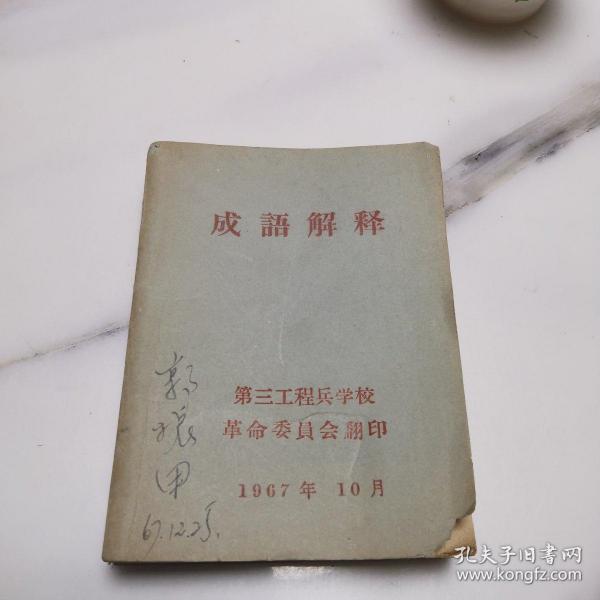 成語解释
第三工程兵学校
革命委員会翻印
1967年10月
郭
甲
67.12.25.
孔夫子旧书网
www.kongfz.com